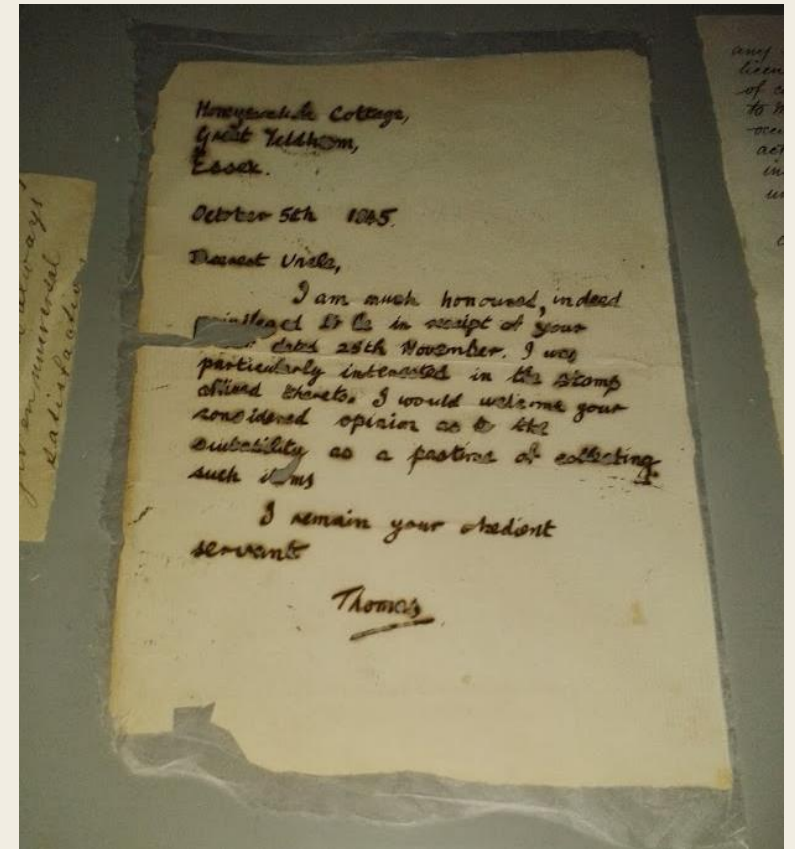 Honeysuckle Cottage,
Great Yeldham,
Essex.
October 5th 1845.
Dearest Uncle,
I am much honoured, indeed
privileged to be in receipt of your
dated 28th November. I was
particularly interested in the stamp
affixed thereto. I would welcome your
considered opinion as to the
suitability as a pastime of collecting
such items
I remain your obedient
servant
Thomas
always
given universal
satisfaction
any
of
to
in